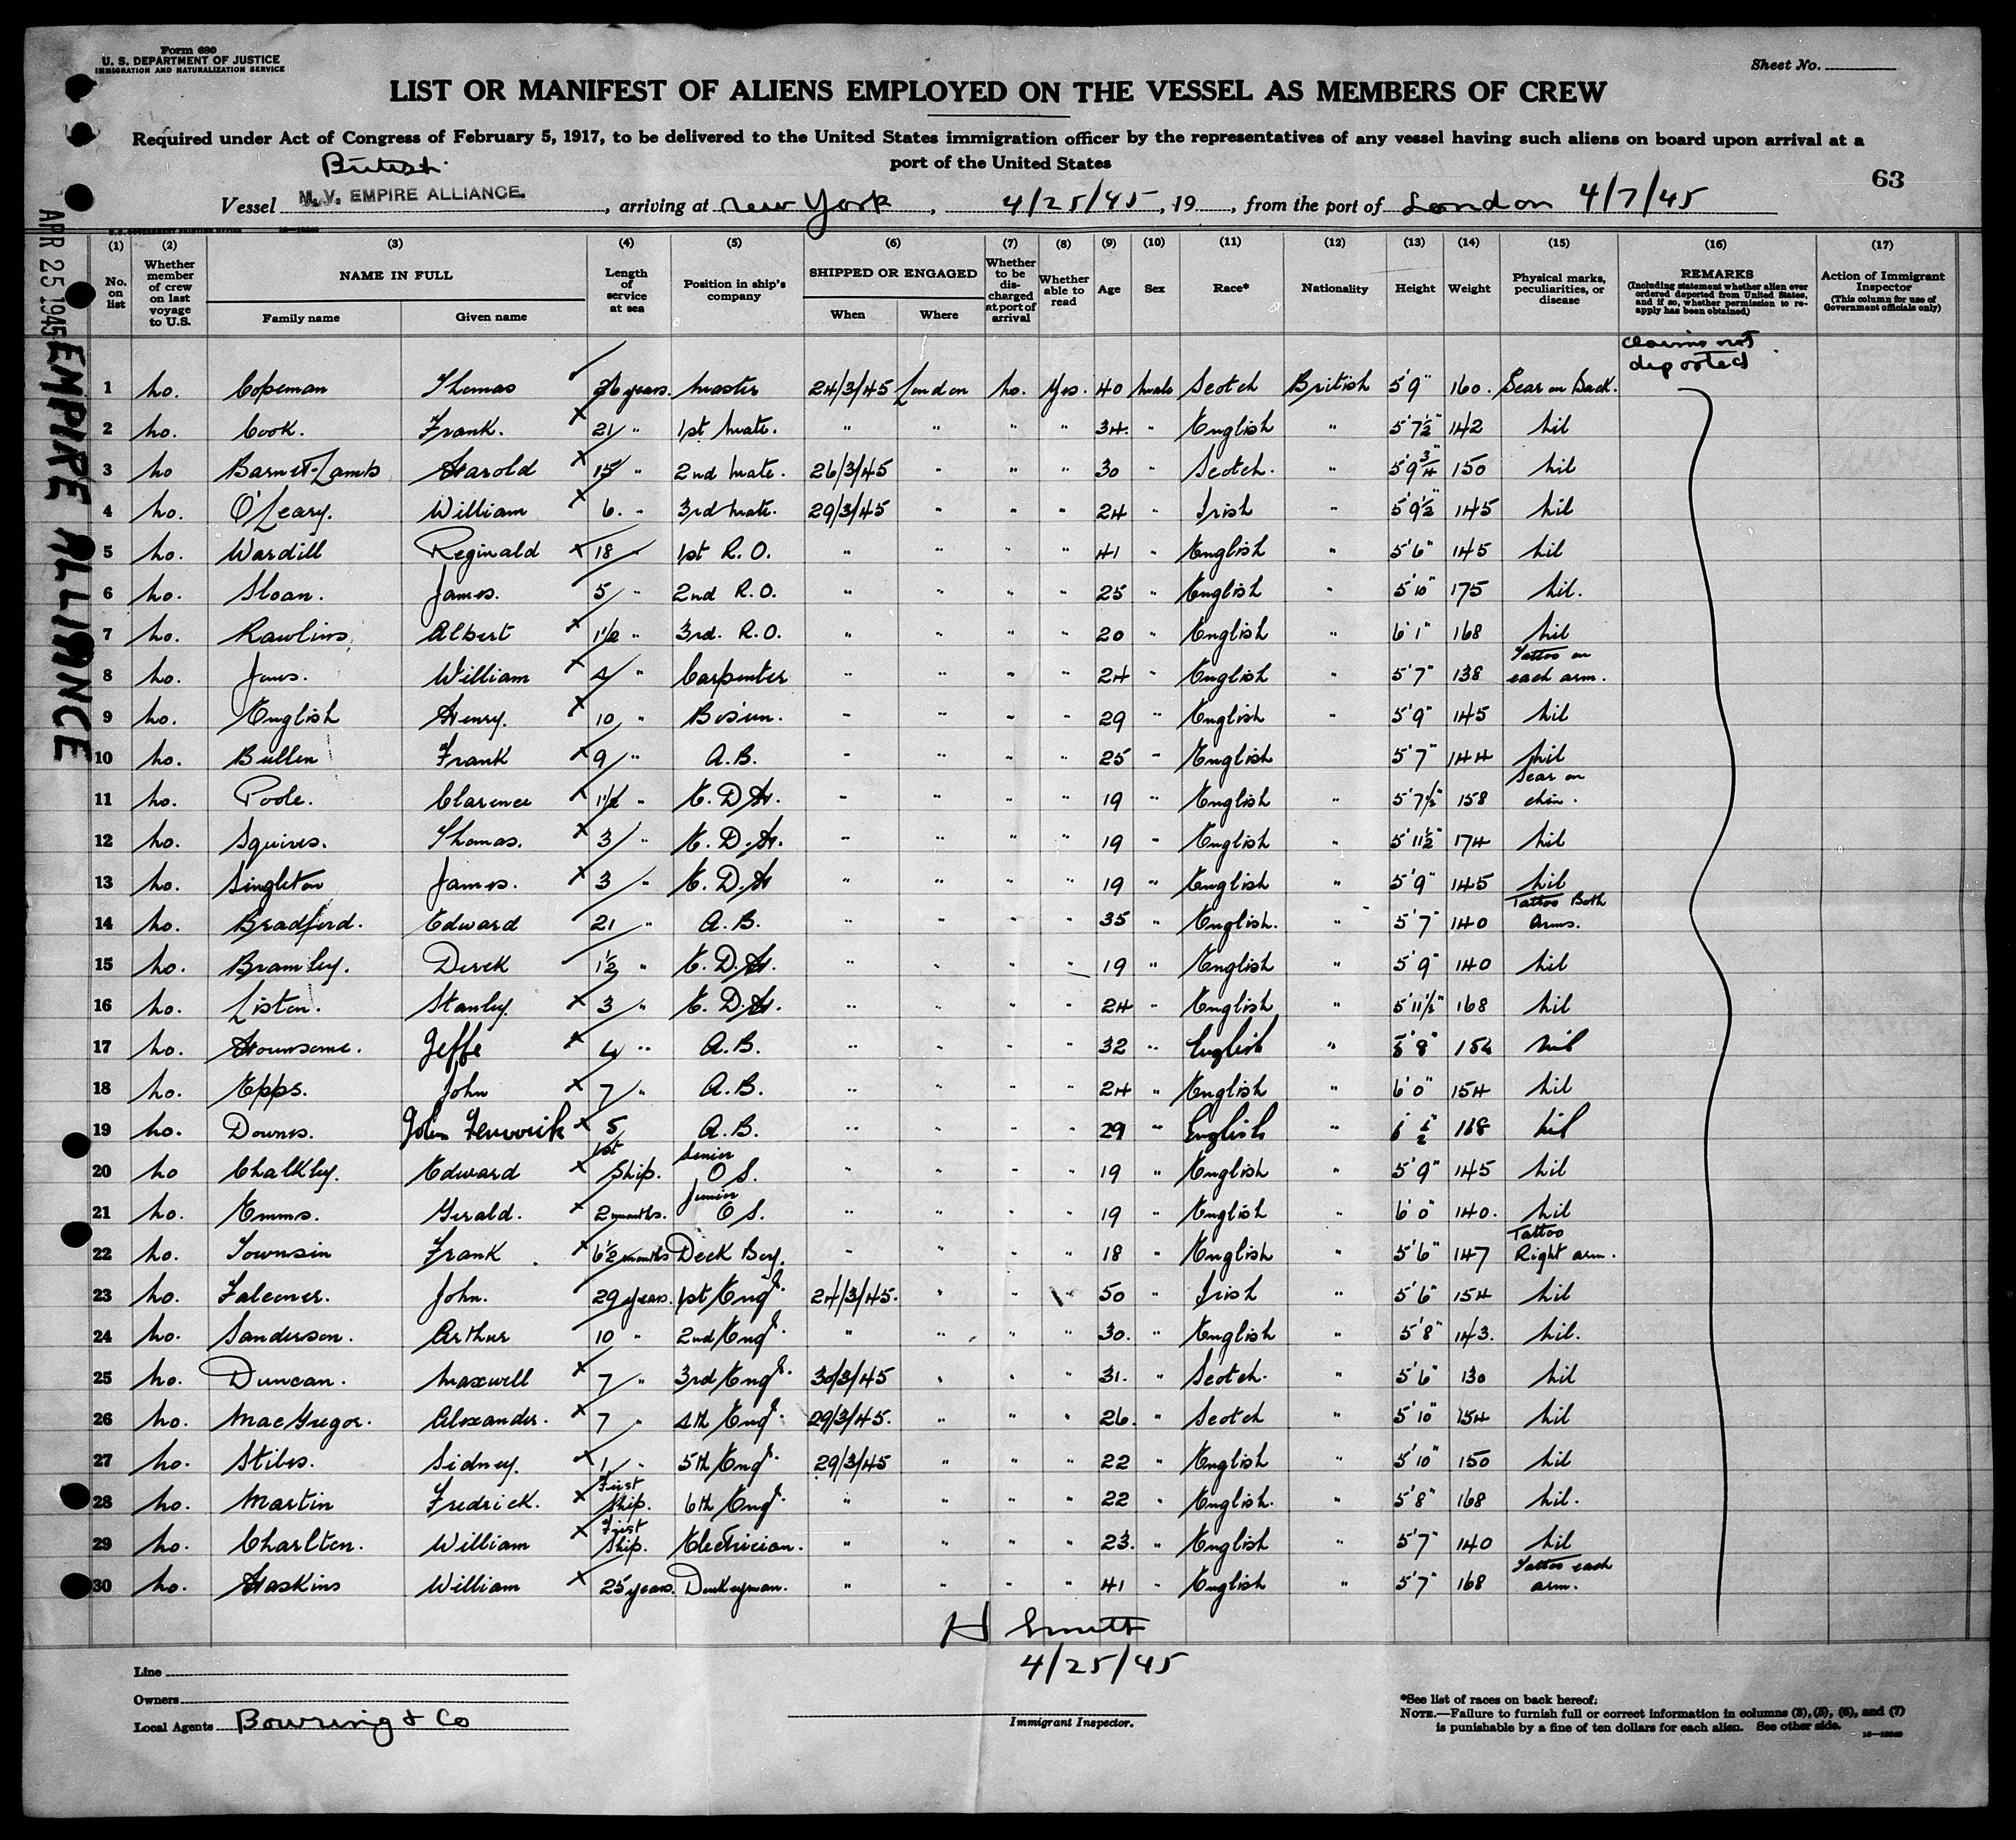 Form 680
U. S. DEPARTMENT OF JUSTICE
IMMIGRATION AND NATURALIZATION SERVICE
Sheet No.
LIST OR MANIFEST OF ALIENS EMPLOYED ON THE VESSEL AS MEMBERS OF CREW
Required under Act of Congress of February 5, 1917, to be delivered to the United States immigration officer by the representatives of any vessel having such aliens on board upon arrival at a
port of the United States
British
63
Vessel M.V. EMPIRE ALLIANCE. , arriving at New York , 4/25/45 , 19 , from the port of London 4/7/45
APR 25 1945 EMPIRE ALLIANCE
(1) (2) (3) (4) (5) (6) (7) (8) (9) (10) (11) (12) (13) (14) (15) (16) (17)
No. on list Whether member of crew on last voyage to U.S. NAME IN FULL Family name Given name Length of service at sea Position in ship's company SHIPPED OR ENGAGED When Where Whether to be discharged at port of arrival Whether able to read Age Sex Race* Nationality Height Weight Physical marks, peculiarities, or disease REMARKS (Including statement whether alien ever ordered deported from United States, and if so, whether permission to reapply has been obtained) Action of Immigrant Inspector (This column for use of Government officials only)
claims not deported
1 No. Copeman Thomas 26 years. Master 24/3/45 London No. Yes. 40 Male Scotch British 5'9" 160. Scar on Back.
2 No. Cook. Frank. 21 " 1st Mate. " " " " 34. " English " 5'7½" 142 Nil
3 No Barnet-Lamb Harold 15 " 2nd Mate. 26/3/45 " " " 30 " Scotch. " 5'9¾" 150 Nil
4 No. O'Leary. William 6. " 3rd Mate. 29/3/45 " " " 24 " Irish " 5'9½" 145 Nil
5 No. Wardill Reginald 18 " 1st R.O. " " " " 41 " English " 5'6" 145 Nil
6 No. Sloan. James. 5 " 2nd R.O. " " " " 25 " English " 5'10" 175 Nil.
7 No. Rawlins Albert 1½ " 3rd. R.O. " " " " 20 " English " 6'1" 168 Nil
8 No. Jones. William 4 " Carpenter " " " " 24 " English " 5'7" 138 Tattoo on each arm.
9 No. English Henry. 10 " Bos'un. " " " " 29 " English " 5'9" 145 Nil
10 No. Bullen Frank 9 " A.B. " " " " 25 " English 5'7" 144 Nil
11 No. Poole. Clarence 1½ " E.D.H. " " " " 19 " English " 5'7½" 158 Scar on chin.
12 No. Squires. Thomas. 3 " E.D.H. " " " " 19 " English " 5'11½" 174 Nil
13 No. Singleton James. 3 " E.D.H " " " " 19 " English " 5'9" 145 Nil
14 No. Bradford. Edward 21 " A.B. " " " " 35 " English. " 5'7" 140 Tattoo Both Arms.
15 No. Bramley. Derek 1½ " E.D.H. " " " " 19 " English " 5'9" 140 Nil
16 No. Liston. Stanley. 3 " E.D.H. " " " " 24 " English " 5'11½" 168 Nil
17 No. Hounsome. 4 " A.B. " " " " 32 " English " 5'8" 154 Nil
18 No. Epps. John 7 " A.B. " " " " 24 " English " 6'0" 154 Nil
19 No. Downs. John 5 A.B. " " " " 29 " English " 168 Nil
20 No Chalkley. Edward 1st Ship. Senior O S. " " " " 19 " English " 5'9" 145 Nil
21 No. Emms. Gerald. 2 months. Junior O S. " " " " 19 " English " 6'0" 140. Nil
22 No. Townsin Frank 6½ months Deck Boy. " " " " 18 " English " 5'6" 147 Tattoo Right arm.
23 No. Falconer. John. 29 years. 1st Engr. 24/3/45. " " " 50 " Irish " 5'6" 154 Nil
24 No. Sanderson. Arthur 10 " 2nd Engr. " " " " 30. " English " 5'8" 143. Nil.
25 No. Duncan. Maxwell 7 " 3rd Engr. 30/3/45 " " " 31. " Scotch. " 5'6" 130 Nil
26 No. MacGregor. Alexander. 7 " 4th Engr. 29/3/45. " " " 26. " Scotch " 5'10" 154 Nil
27 No. Stiles. Sidney. 1 " 5th Engr. 29/3/45 " " " 22 " English " 5'10" 150 Nil
28 No. Martin Fredrick. First Ship. 6th Engr. " " " " 22 " English. " 5'8" 168 Nil.
29 No. Charlton. William First Ship. Electrician. " " " " 23. " English " 5'7" 140 Nil
30 No. Haskins William 25 years. Donkeyman. " " " " 41 " English " 5'7" 168 Tattoo each arm.
H Smith
4/25/45
Line
Owners
Local Agents Bowring & Co
Immigrant Inspector.
*See list of races on back hereof.
NOTE.—Failure to furnish full or correct information in columns (3), (5), (6), and (7)
is punishable by a fine of ten dollars for each alien. See other side.